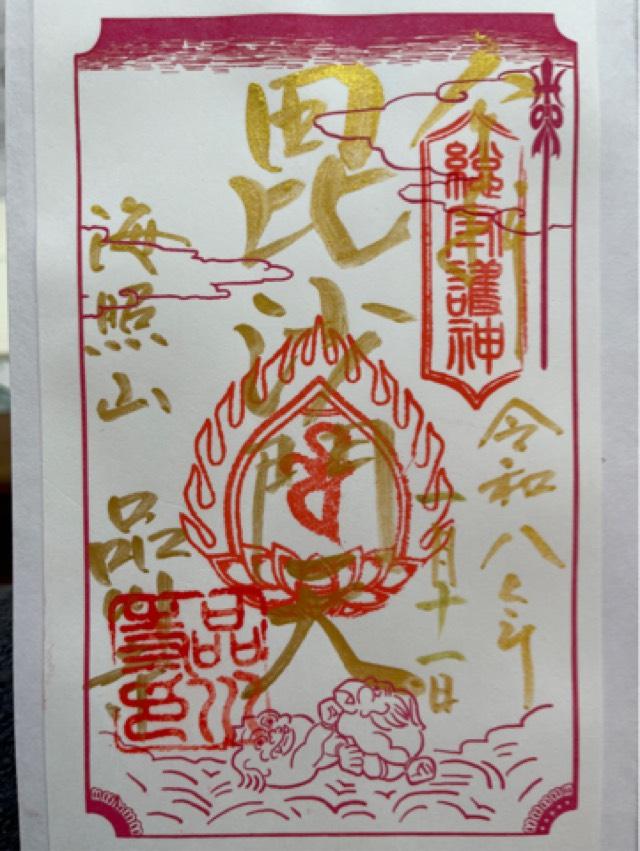 總守護神
令和八年
月十一日
毘沙門天
海照山
品川寺
品川
寺印